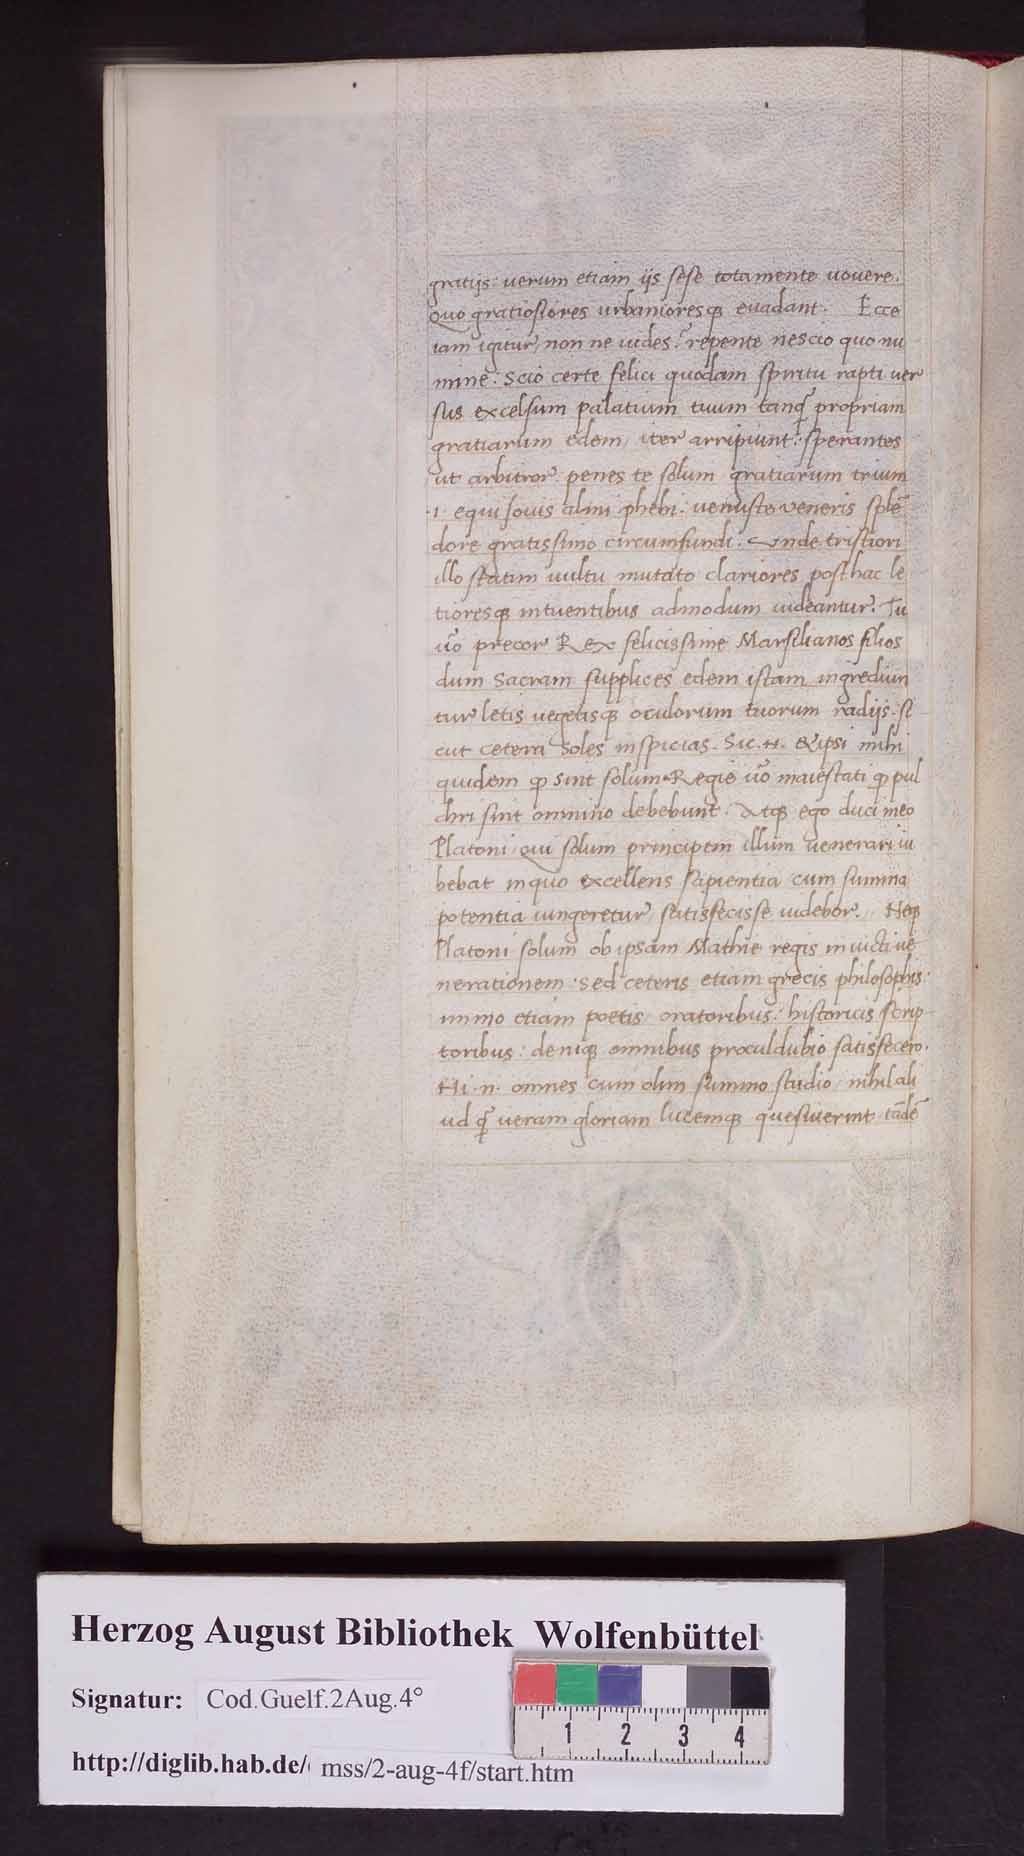 gratijs: verum etiam ijs sese totamente uouere.
Quo gratiosiores urbanioresqꝫ euadant. Ecce
iam igitur, non ne uides? repente nescio quo nu
mine: Scio certe felici quodam spiritu rapti uer
sus excelsum palatium tuum tanq̃ propriam
gratiarum edem, iter arripiunt: sperantes
ut arbitror penes te solum gratiarum trium
.i. equi Iouis almi phebi: uenuste veneris splē
dore gratissimo circumfundi. Vnde tristiori
illo statim uultu mutato clariores posthac le
tioresqꝫ intuentibus admodum uideantur. Tu
ũo precor Rex felicissime Marsilianos filios
dum Sacram supplices edem istam ingrediun
tur letis uegetisqꝫ oculorum tuorum radijs: si
cut ceteni Soles inspicias. Sic .n. & ipsi mihi
quidem ꝙ Sint solum. Regie ũo maiestati ꝙ pul
chri sint omnino debebunt. Atqꝫ ego duci meo
Platoni qui solum principem illum uenerari iu
bebat inquo excellens sapientia cum summa
potentia iungeretur, satisfecisse uidebor. Neqꝫ
Platoni solum ob ipsam Mathie regis inuicti ue
nerationem: Sed ceteris etiam grecis philosophis:
immo etiam poetis, oratoribus: historicis scrip
toribus: deniqꝫ omnibus proculdubio satisfecero.
Hi .n. omnes cum olim summo studio, nihil ali
ud q̃ ueram gloriam lucemqꝫ quesiuerint tādē
Herzog August Bibliothek Wolfenbüttel
Signatur: Cod.Guelf.2Aug.4°
1 2 3 4
http://diglib.hab.de/ mss/2-aug-4f/start.htm